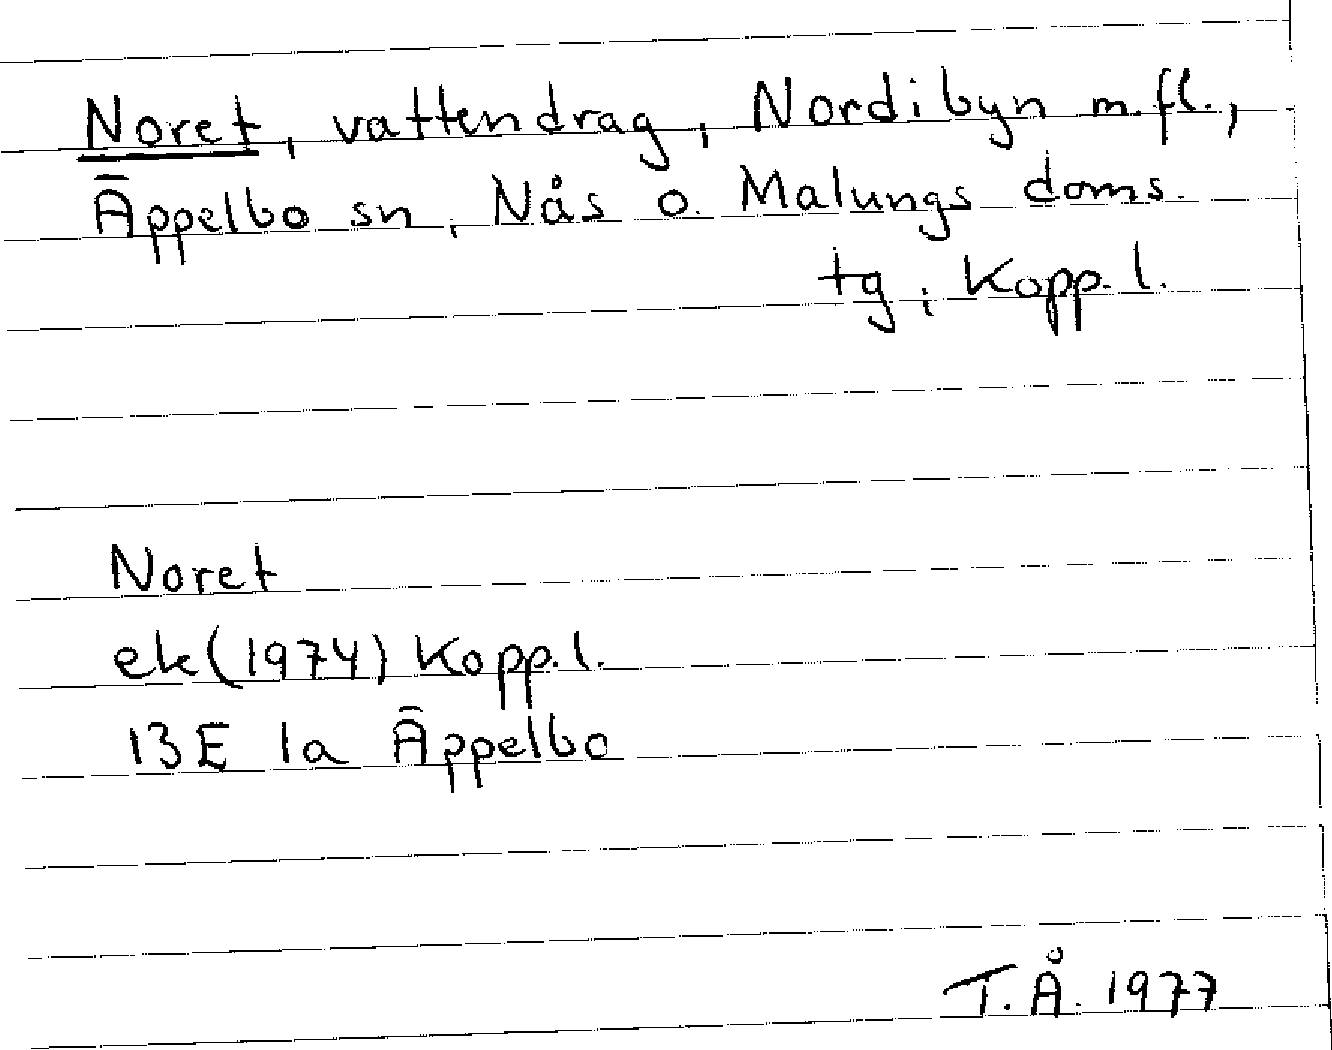 Noret, vattendrag, Nordibyn m.fl.,
Äppelbo sn, Nås o. Malungs doms.
tg, Kopp. l.
Noret
ek (1974) Kopp. l.
13E 1a Äppelbo
T.Å. 1977